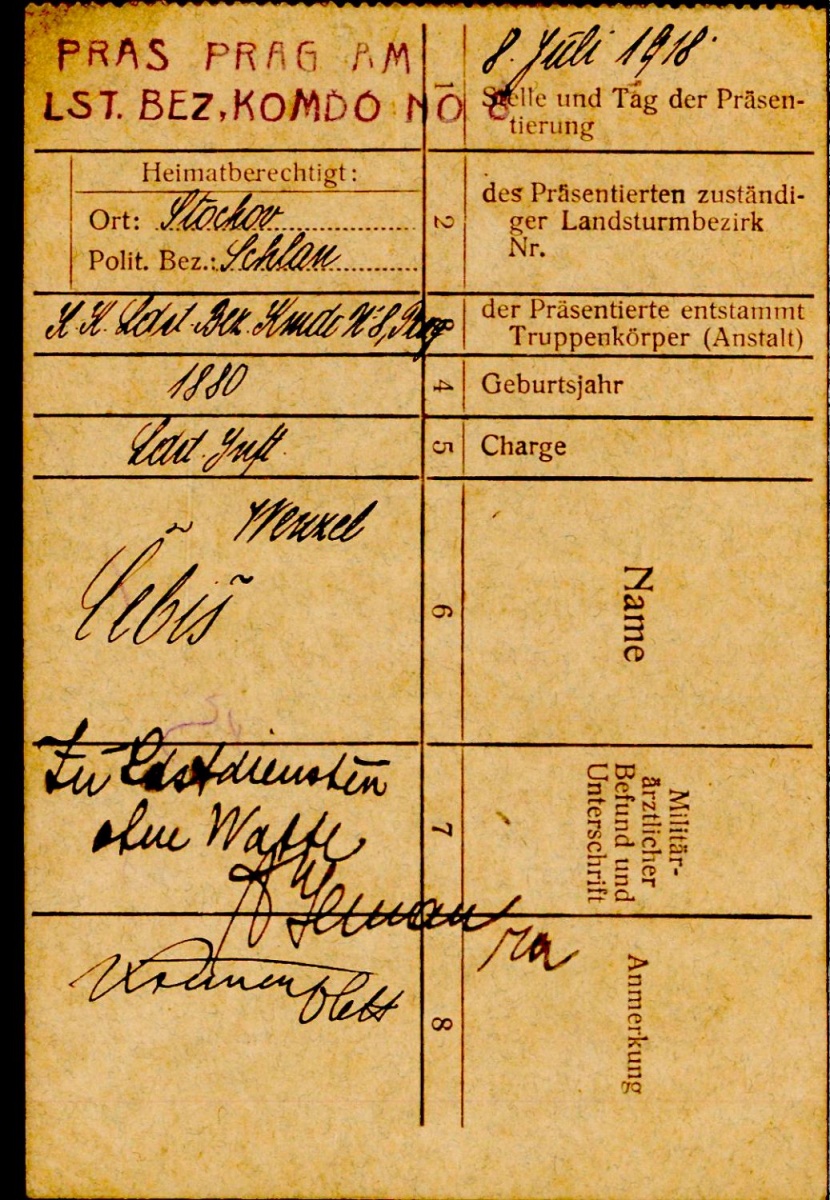 PRÄS PRAG AM 8. Juli 1918.
LST. BEZ, KOMDO NO 8
1
Stelle und Tag der Präsen-
tierung
Heimatberechtigt:
Ort: Stochov
Polit. Bez.: Schlan
2
des Präsentierten zuständi-
ger Landsturmbezirk
Nr.
K. K. Ldst. Bez. Kmdo N 8, Prag
3
der Präsentierte entstammt
Truppenkörper (Anstalt)
1880
4
Geburtsjahr
Ldst. Inft.
5
Charge
Wenzel
Čebiš
6
Name
Zu Ldstdiensten
ohne Waffe
7
Militär-
ärztlicher
Befund und
Unterschrift
8
Anmerkung